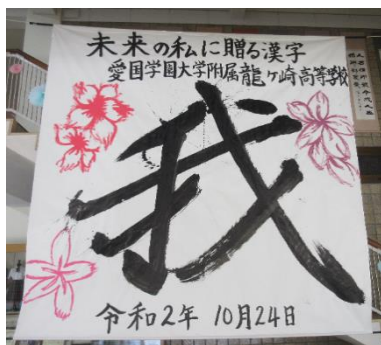 未来の私に贈る漢字
愛国学園大学附属龍ヶ崎高等学校
我
令和2年 10月24日